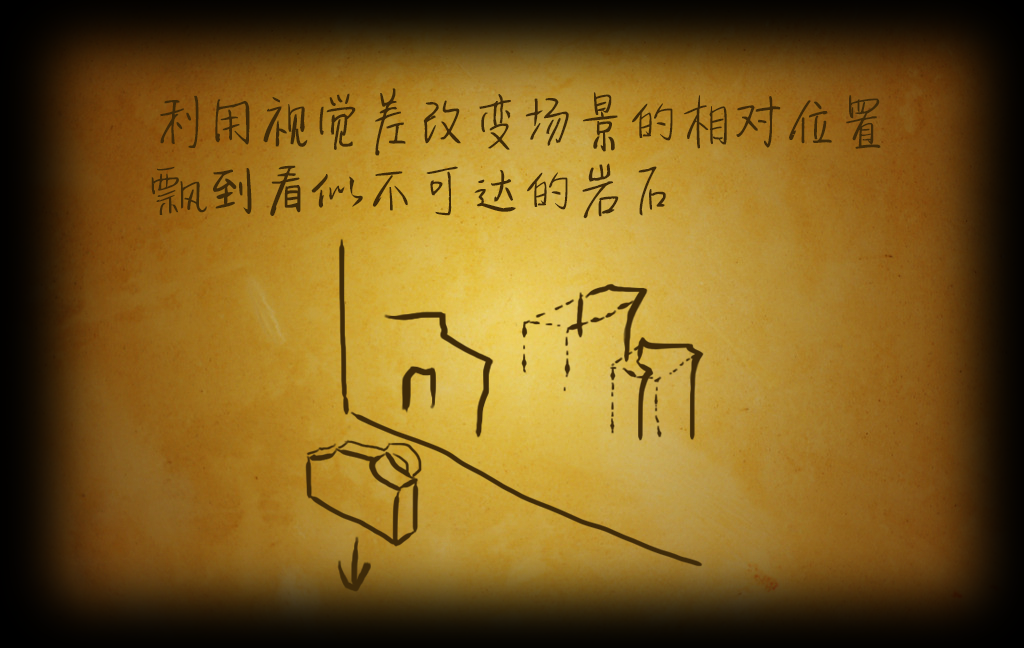 利用视觉差改变场景的相对位置
飘到看似不可达的岩石